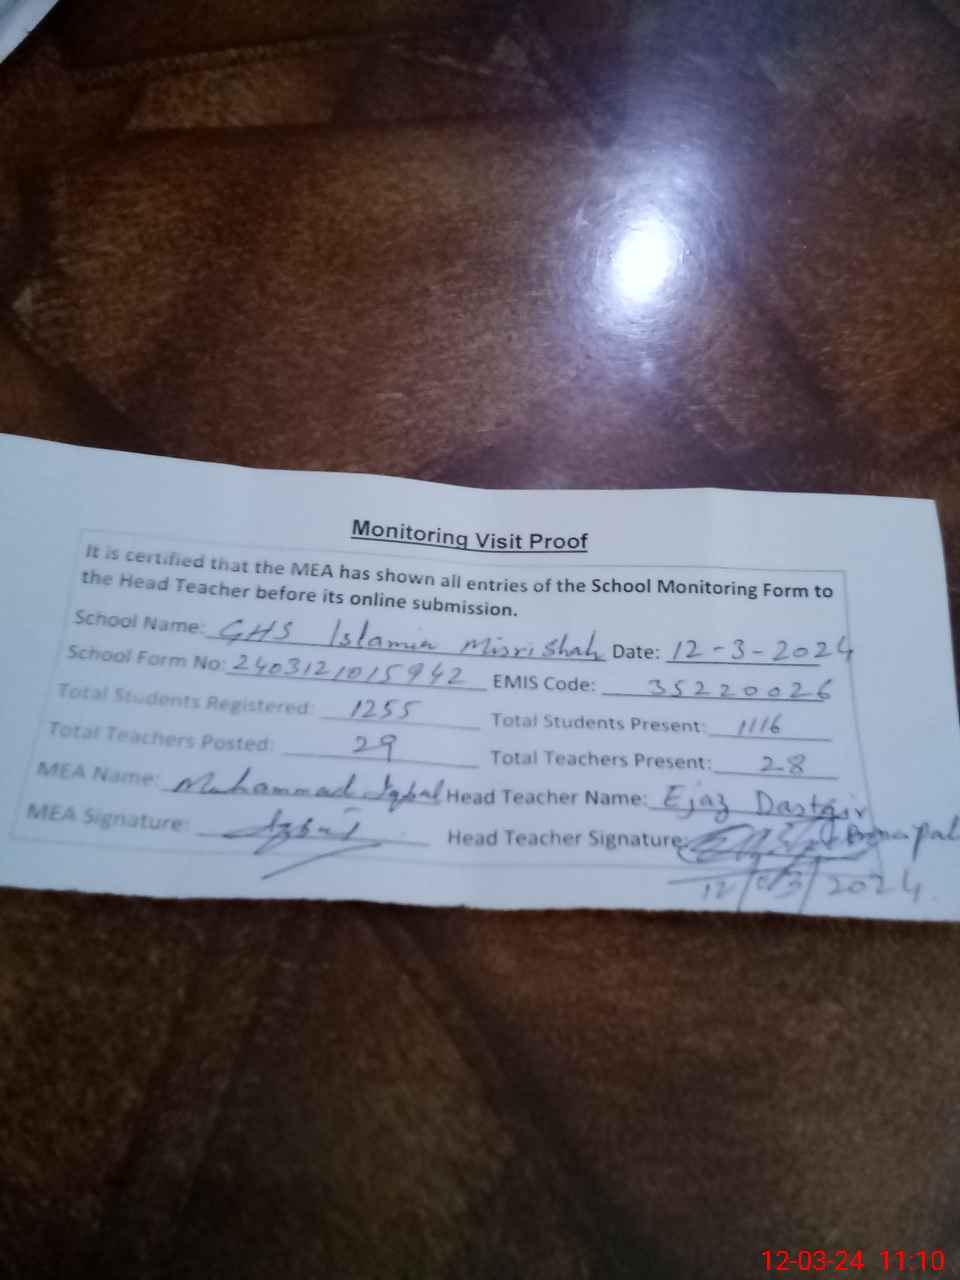 Monitoring Visit Proof
It is certified that the MEA has shown all entries of the School Monitoring Form to
the Head Teacher before its online submission.
School Name: GHS Islamia Misri Shah Date: 12-3-2024
School Form No: 2403121015942 EMIS Code: 35220026
Total Students Registered: 1255 Total Students Present: 1116
Total Teachers Posted: 29 Total Teachers Present: 28
MEA Name: Muhammad Iqbal Head Teacher Name: Ejaz Dastgir
MEA Signature: Iqbal Head Teacher Signature: Principal
12/03/2024.
12-03-24 11:10